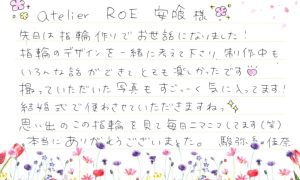 atelier ROE 安喰様
先日は指輪作りでお世話になりました!
指輪のデザインを一緒に考えて下さり、制作中も
いろんな話ができてとても楽しかったです
撮っていただいた写真もすごーく気に入ってます!
結婚式で使わさせていただきますねっ
思い出のこの指輪を見て毎日ニマニマしてます(笑)
本当にありがとうございました。